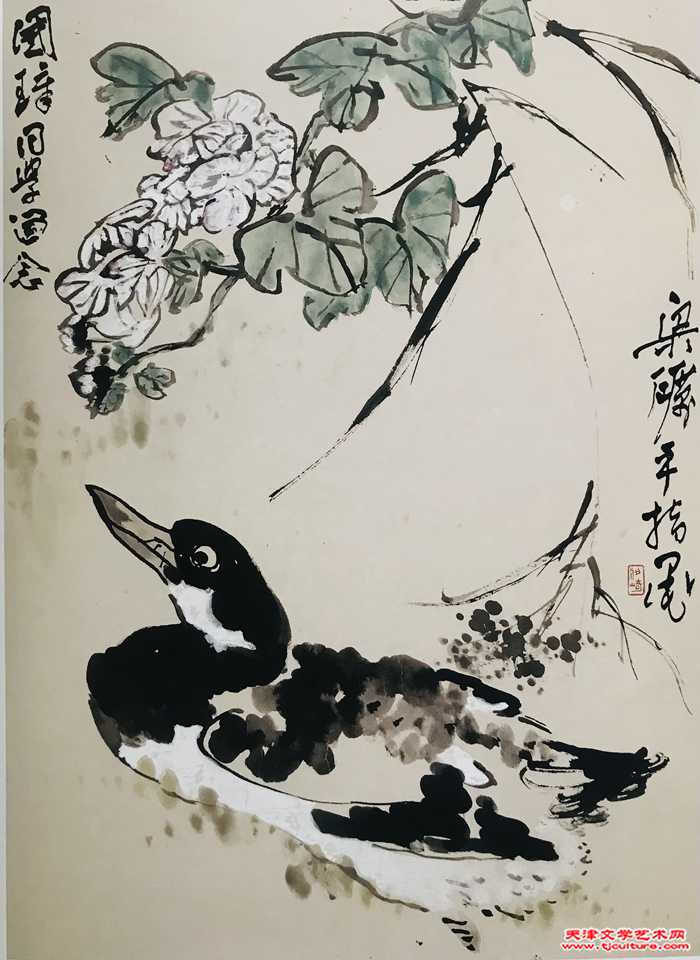 國璋同學留念
梁礪平指墨
天津文学艺术网
www.tjculture.com